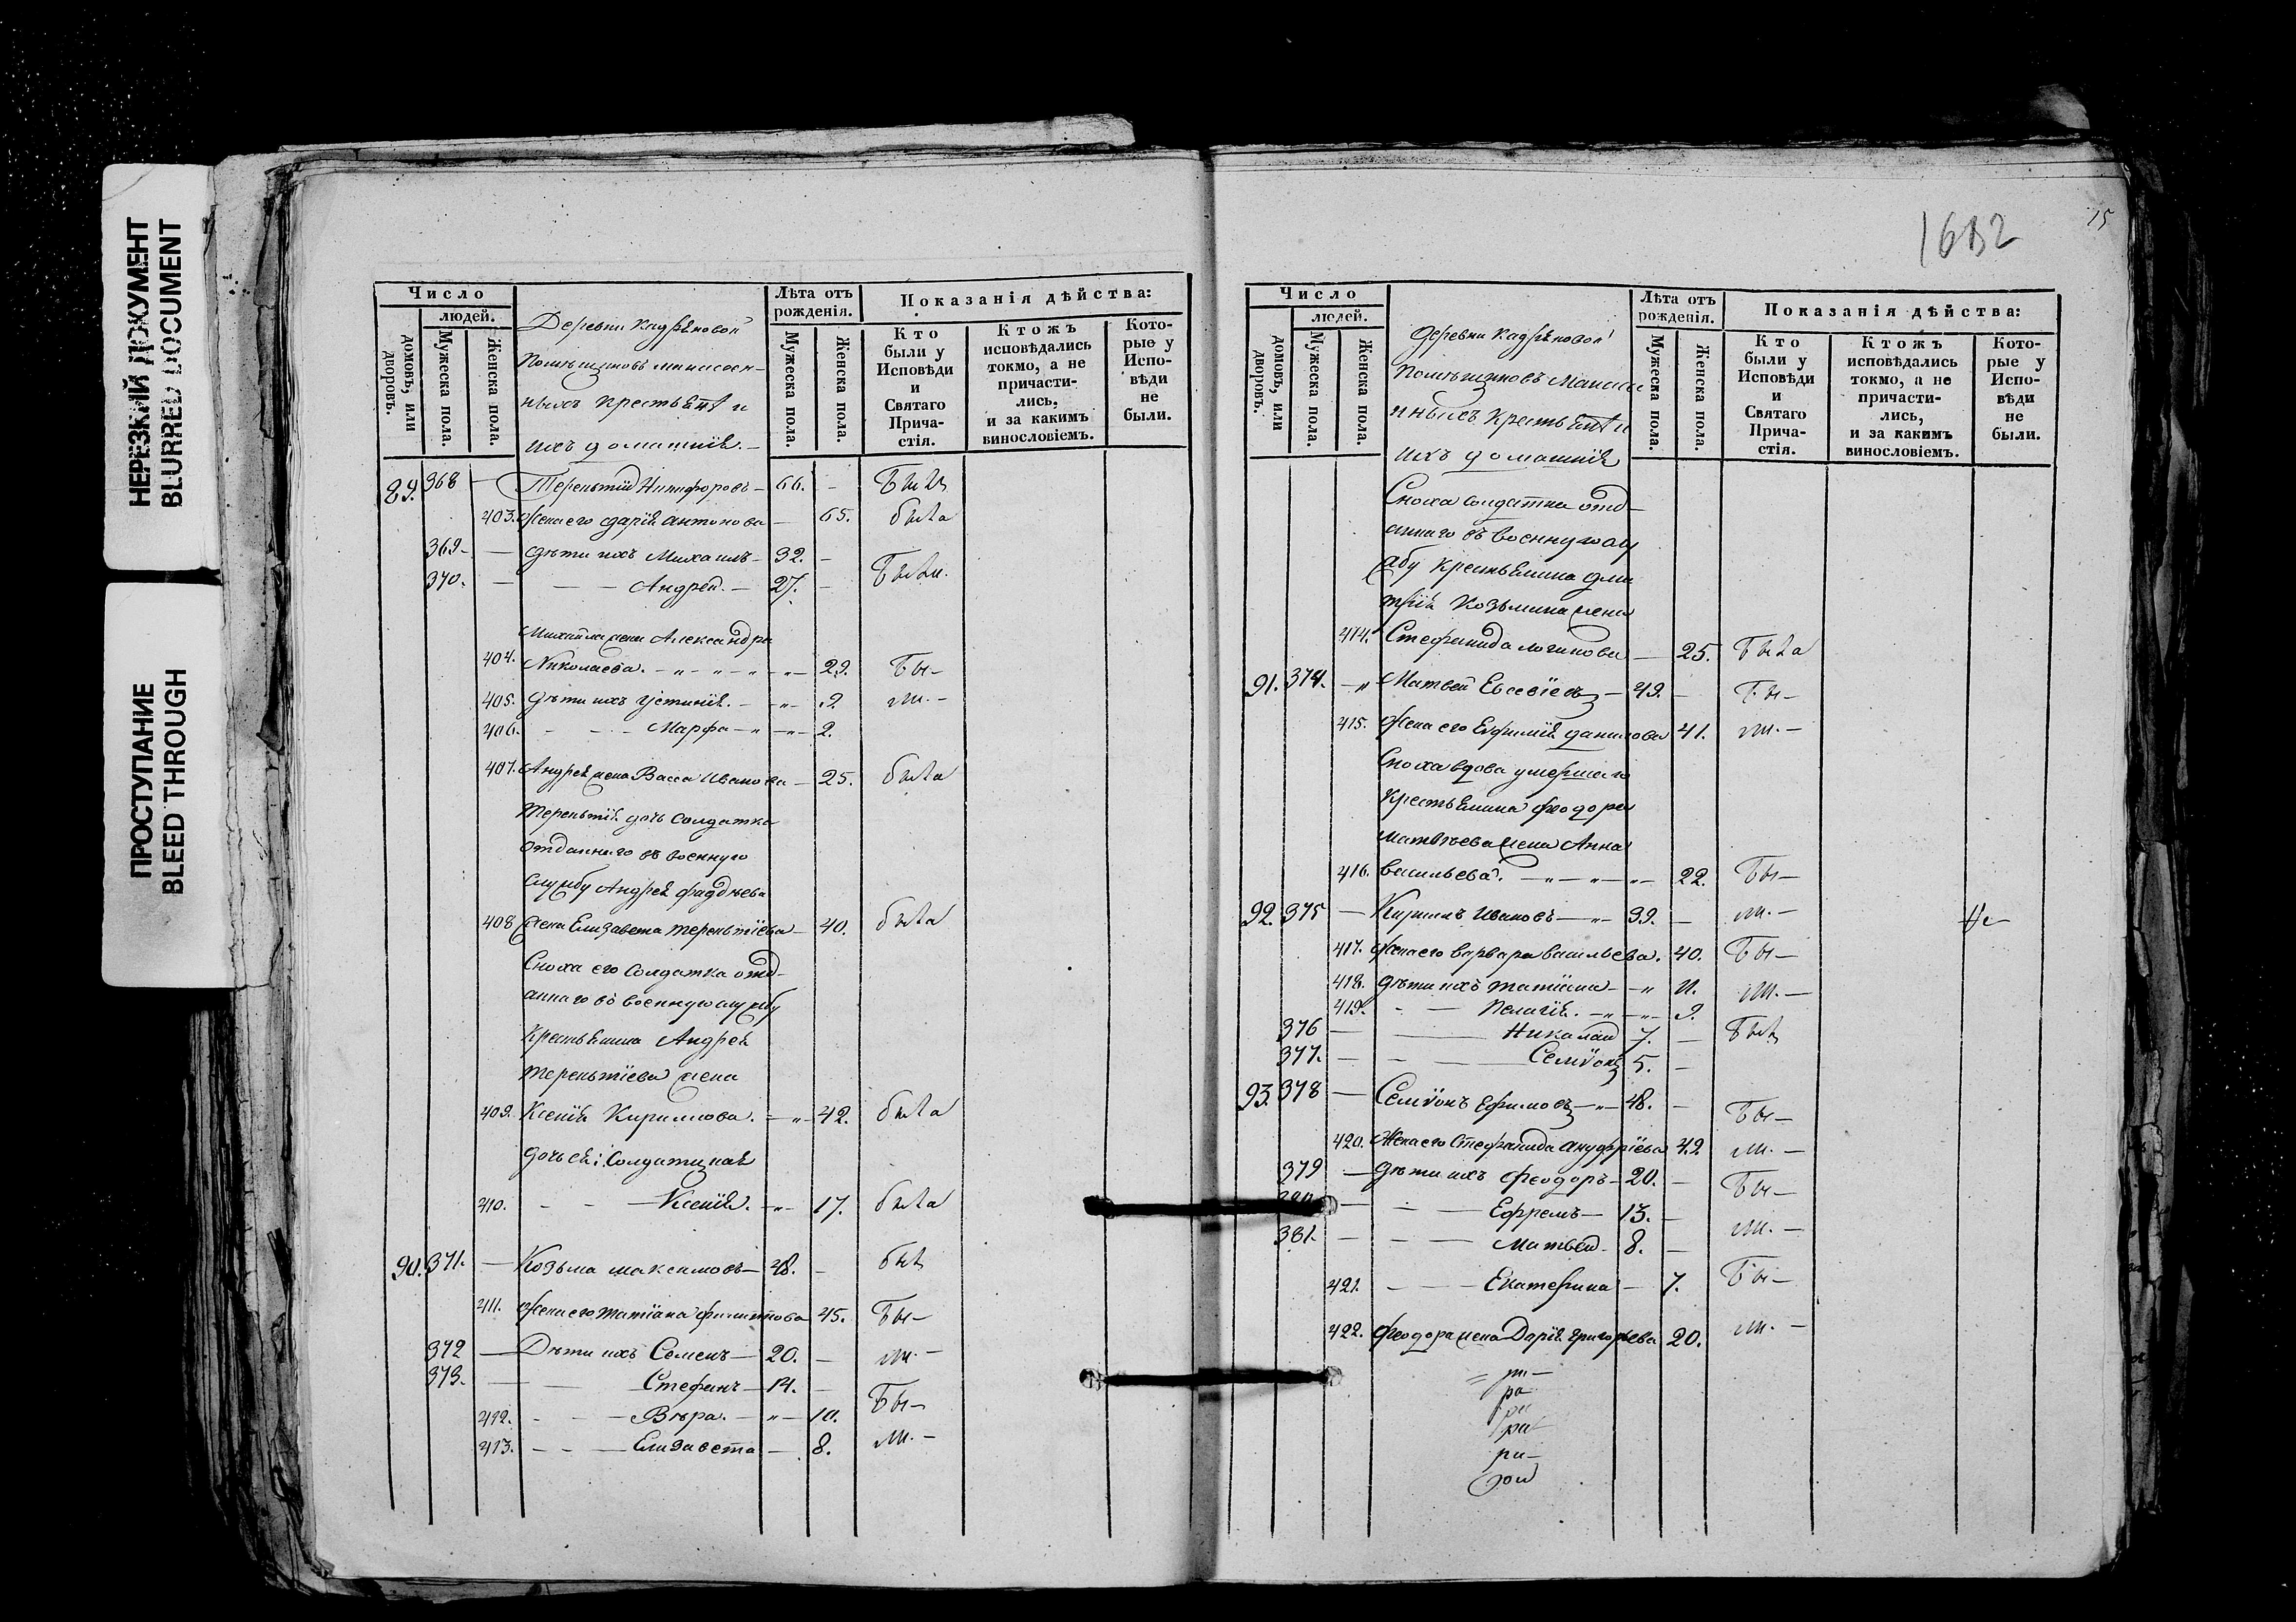 НЕРЕЗКИЙ ДОКУМЕНТ
BLURRED DOCUMENT
ПРОСТУПАНИЕ
BLEED THROUGH
Число
людей.
домовъ, или дворовъ.
Мужеска пола.
Женска пола.
Деревни
ныхъ крестьянъ и
ихъ домашнія.
Лѣта отъ рожденія.
Мужеска пола.
Женска пола.
Показанія дѣйства:
Кто были у Исповѣди и Святаго Прича-стія.
Ктожъ исповѣдались токмо, а не причасти-лись, и за какимъ винословіемъ.
Кото-рые у Испо-вѣди не были.
89. 368 — Терентій Никифоровъ — 66. — Былъ
403. Жена его Дарія Антонова — 65. была
369 — — Дѣти ихъ Михаилъ — 32. —
370. — — — Андрей. — 27. — Были.
Михайла жена Александра
404. Николаева. — 29. Бы—
405. Дѣти ихъ Устинія. — 9. ли. —
406. — — Марфа — 2.
407. Андрея жена Васса Иванова — 25. была
Терентія дочь солдатка
отданнаго въ военную
службу Андрея Фаддѣева
408 жена Елизавета Терентіева — 40. была
Сноха его солдатка отд-
аннаго въ военную службу
Крестьянина Андрея
Терентіева жена
409. Ксенія Кириллова. — 42. была
дочь ея: Солдатская
410. — — Ксенія. — 17. была
90. 371. — Козьма Максимовъ — 48. — былъ
411. Жена его Татіана Филиппова 45. Бы—
372 — Дѣти ихъ Семенъ — 20. — ли. —
373. — — Стефанъ — 14. —
412. — — Вѣра. — 10. Бы—
413. — — Елизавета — 8. ли. —
1632
15
Число
людей.
домовъ, или дворовъ.
Мужеска пола.
Женска пола.
Деревни
ныхъ Крестьянъ и
ихъ домашнія
Лѣта отъ рожденія.
Мужеска пола.
Женска пола.
Показанія дѣйства:
Кто были у Исповѣди и Святаго Прича-стія.
Ктожъ исповѣдались токмо, а не причасти-лись, и за какимъ винословіемъ.
Кото-рые у Испо-вѣди не были.
Сноха солдатка отд-
аннаго въ военную слу
жбу Крестьянина Дми
трія Козьмина жена
414. Стефанида Логинова — 25. Была
91. 374. — Матвей Евсевіевъ — 49. — Бы—
415. Жена его Евфимія Данилова 41. ли. —
Сноха вдова умершаго
Крестьянина Феодора
Матвѣева жена Анна
416. Васильева. — 22. Бы—
92. 375 — Кириллъ Ивановъ — 39. — ли. —
417. Жена его Варвара Васильева. 40. Бы—
418. Дѣти ихъ Татіана — 11. ли. —
419. — — Пелагія. — 9.
376 — — Николай 7. — Былъ
377. — — — Семіонъ 5. —
93. 378 — Семіонъ Ефимовъ — 48. — Бы—
420. Жена его Стефанида Ануфріева 42 ли. —
379 — Дѣти ихъ Феодоръ — 20. — Бы—
— — Ефремъ — 13. — ли. —
381. — — — Матвей — 8. —
421. — — Екатерина — 7. Бы—
422. Феодора жена Дарія Григорьева 20. ли. —